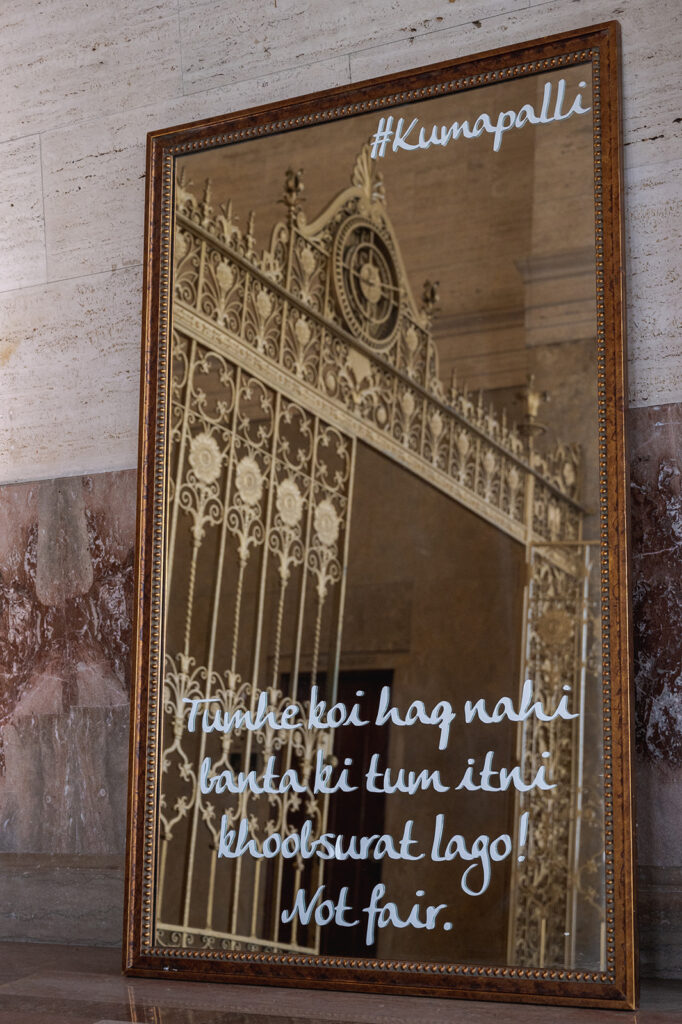 #Kumapalli
Tumhe koi haq nahi
banta ki tum itni
khoobsurat lago!
Not fair.